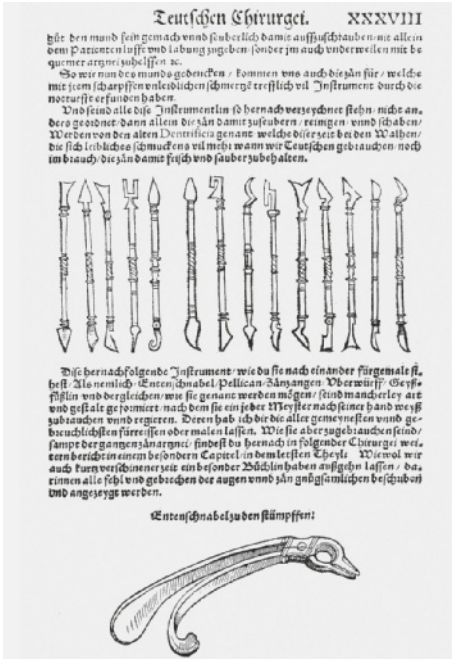 Teutschen Chirurgei. XXXVIII
gût den mund fein gemach vnnd seuberlich damit auffzuschrauben/nit allein
dem Patienten lufft vnd labung zugeben/sonder jm auch vnderweilen mit be
quemer artznei zuhelffen ⁊c.
So wir nun des munds gedencken/kommen vns auch die zän für/welche
mit jrem scharpffen vnleidlichen schmertzē trefflich vil Instrument durch die
notturfft erfunden haben.
Vnd seind alle dise Instrumentlin so hernach verzeychnet stehn/nicht an-
ders geordnet/dann allein die zän damit zuseubern/reinigen/vnnd schaben/
Werden von den alten Dentrificia genant/welche diser zeit bei den Walhen/
die sich leibliches schmuckens vil mehr wann wir Teutschen gebrauchen/noch
im brauch/die zän damit frisch vnd sauber zubehalten.
Dise hernachfolgende Instrument/wie du sie nach einander fürgemalt si-
hest/Als nemlich/Entenschnabel/Pellican/Zänzangen/Vberwürff/Geyß-
füßlin vnd dergleichen/wie sie genant werden mögen/seind mancherley art
vnd gestalt geformiert/nach dem sie ein jeder Meyster nach seiner hand weyß
zubrauchen vnnd regieren. Deren hab ich dir die aller gemeynesten vnnd ge-
breuchlichsten fürreissen oder malen lassen. Wie sie aber zugebrauchen seind/
sampt der gantzen zänartznei/findest du hernach in folgender Chirurgei wei-
tern bericht in einem besondern Capitel/in dem letsten Theyl. Wiewol wir
auch kurtz verschinener zeit ein besonder Büchlin haben außgehn lassen/da-
rinnen alle fehl vnd gebrechen der augen vnnd zän gnûgsamlichen beschriben
vnd angezeygt werden.
Entenschnabel zu den stümpffen: